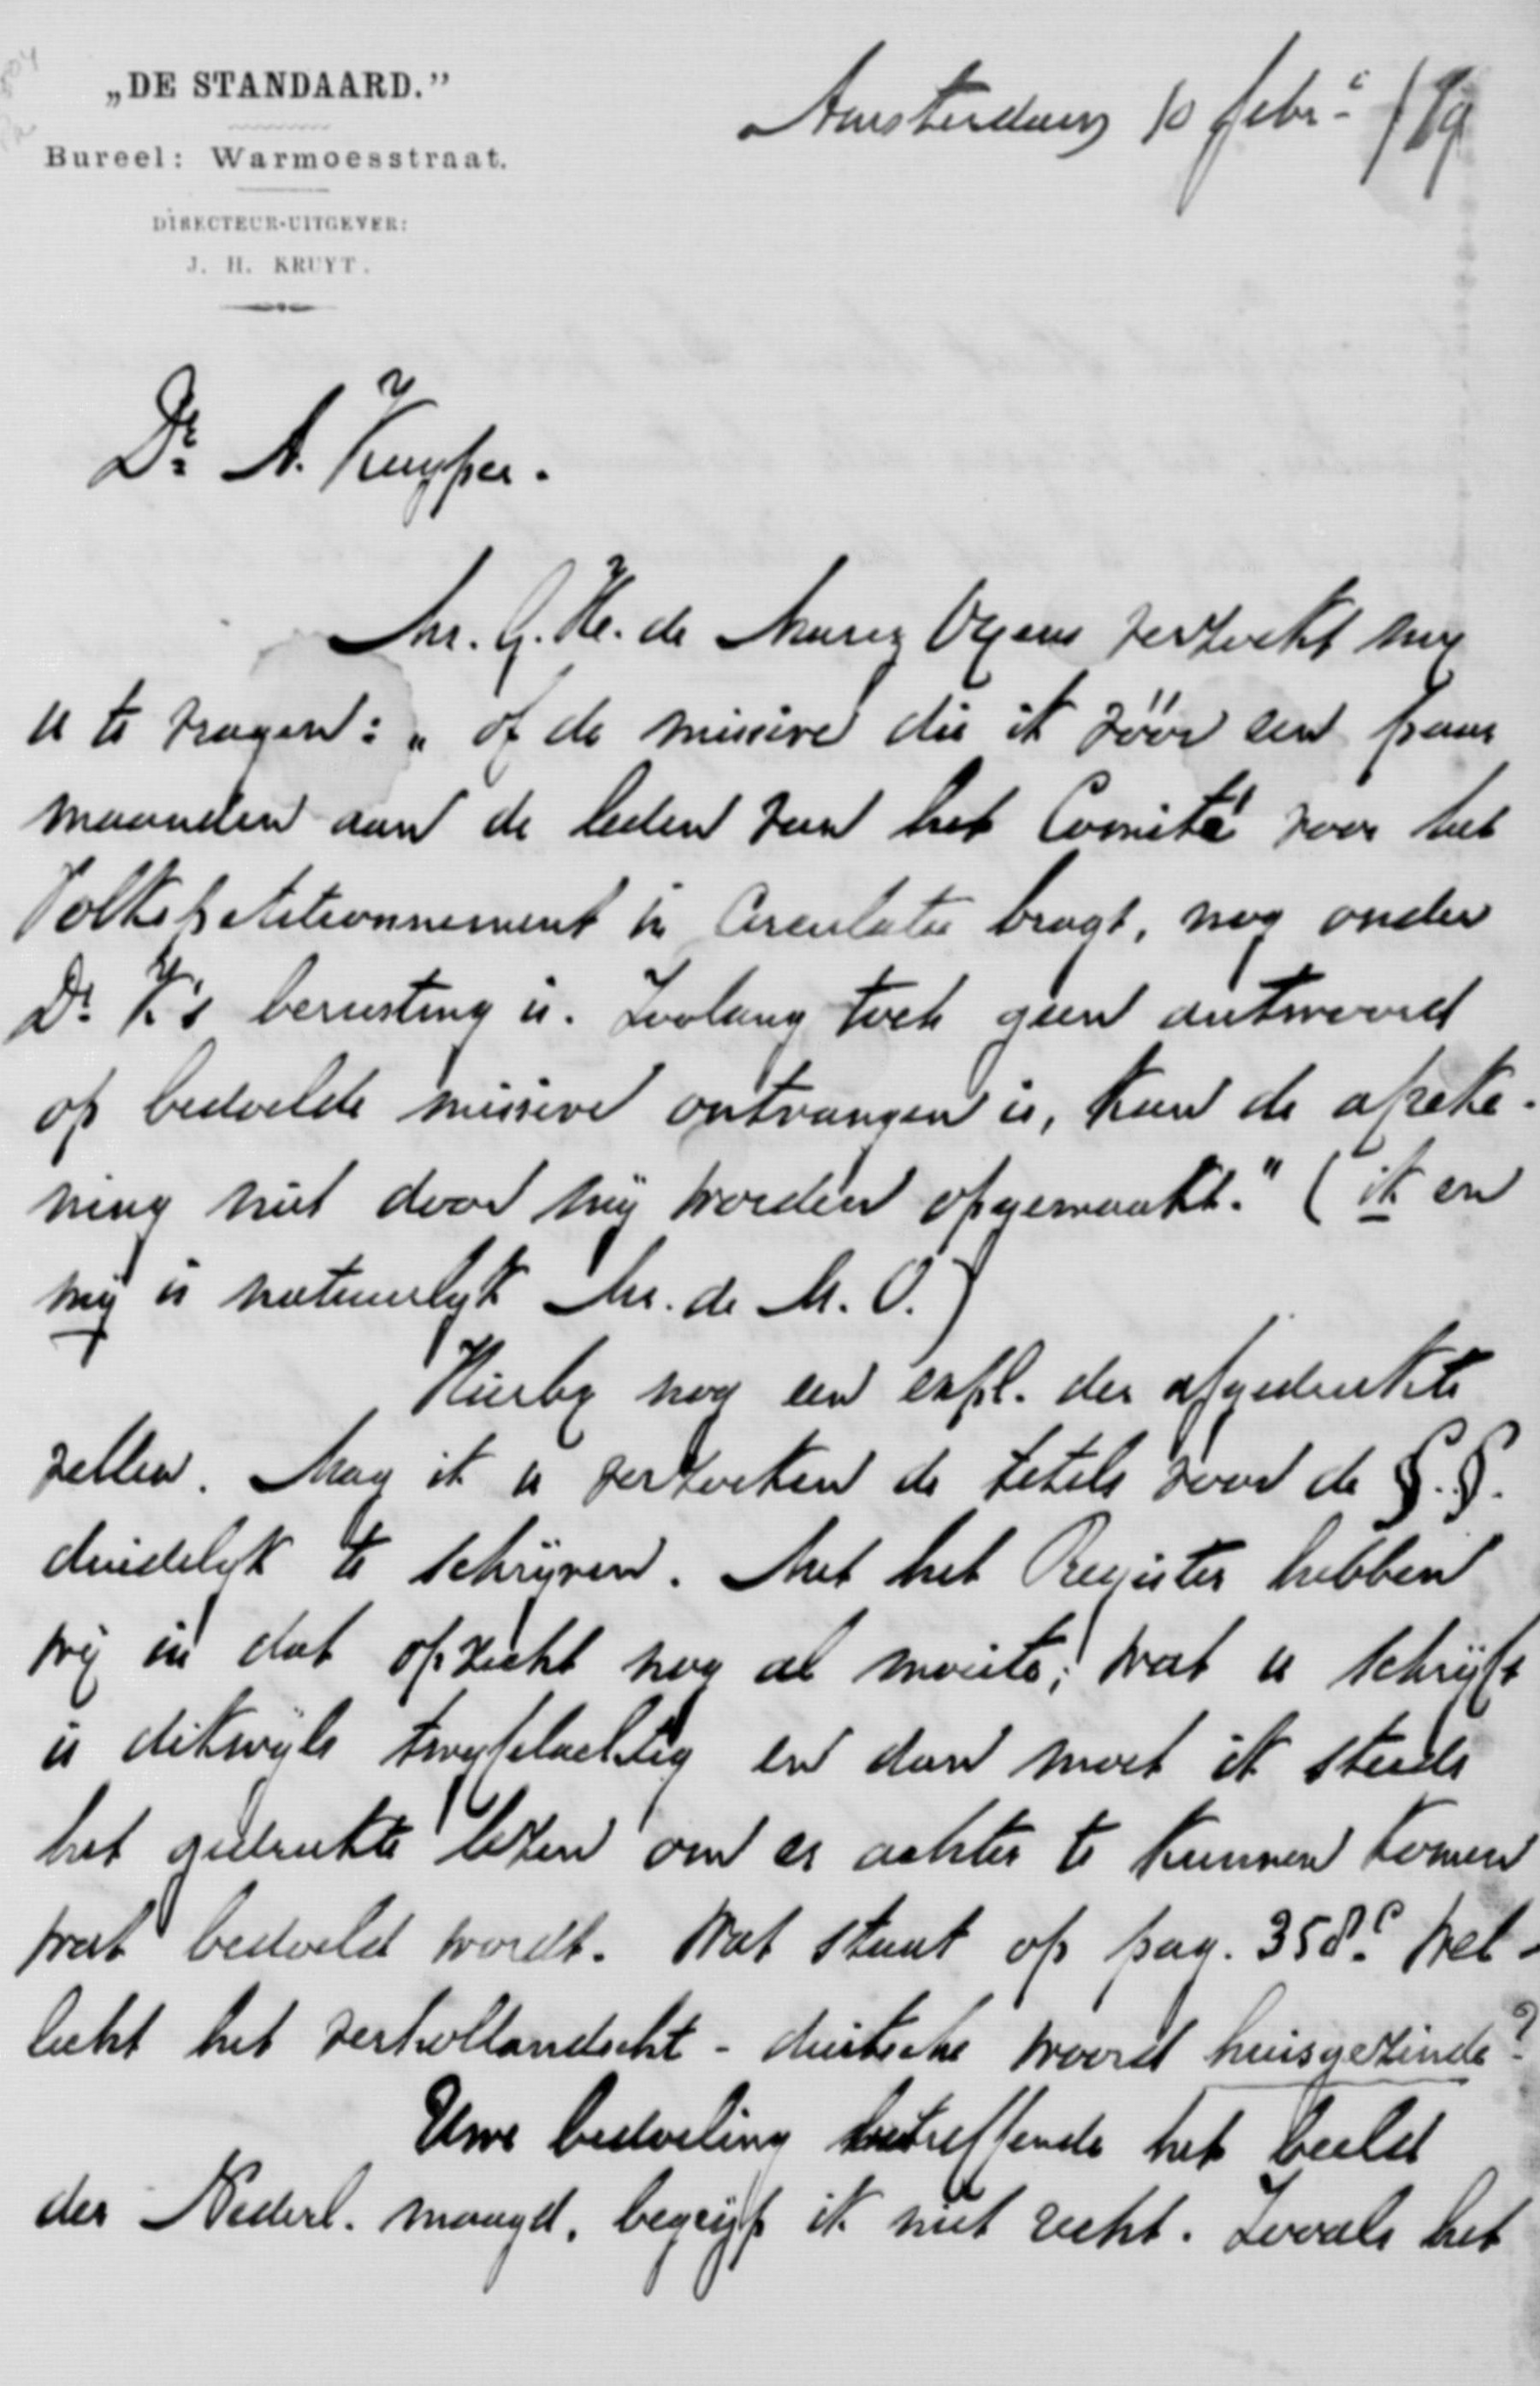 „DE STANDAARD."
Bureel: Warmoesstraat.
DIRECTEUR-UITGEVER:
J. H. KRUYT.
Amsterdam 10 febr. /79
Dr. A. Kuyper.
Mr. G. H. de Marez Oyens verzoekt my
u te vragen: „ of de missive die ik vóór een paar
maanden aan de leden van het Comité voor het
Volkspetitionnement in Circulatie bragt, nog onder
Dr. K's berusting is. Zoolang toch geen antwoord
op bedoelde missive ontvangen is, kan de afreke-
ning niet door mij worden opgemaakt." (ik en
mij is natuurlyk Mr. de M. O.)
Hierby nog een expl. der afgedrukte
vellen. Mag ik u verzoeken de titels voor de §.§.
duidelyk te schrijven. Met het Register hebben
wij in dat opzicht nog al moeite; wat u schrijft
is dikwyls twyfelachtig en dan moet ik steeds
het gedrukte lezen om er achter te kunnen komen
wat bedoeld wordt. Wat staat op pag. 358? Wel-
licht het verhollandscht - duitsche woord huisgezinde?
Uwe bedoeling betreffende het beeld
der Nederl. maagd, begrijp ik niet recht. Zooals het